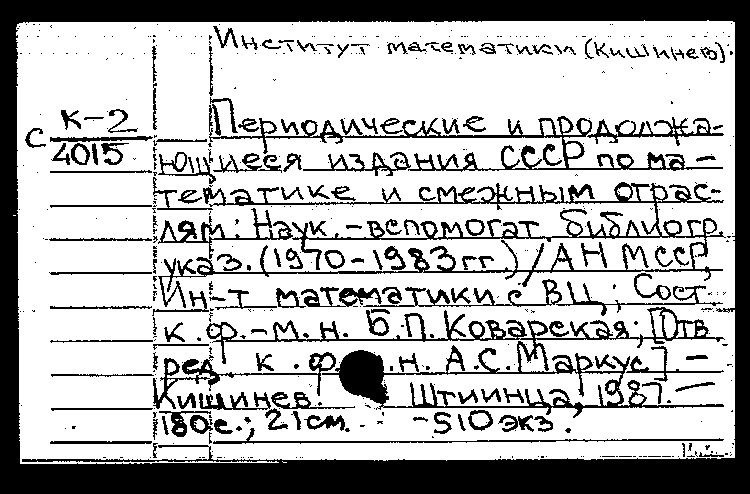 Институт математики (Кишинев).
Периодические и продолжа-
С К-2
4015
ющиеся издания СССР по ма-
тематике и смежным отрас-
лям: Наук.-вспомогат. библиогр.
указ. (1970-1983 гг.) / АН МССР,
Ин-т математики с ВЦ; Сост.
к.ф.-м.н. Б.П. Коварская; [Отв.
ред. к.ф. н. А.С. Маркус]. -
Кишинев: Штиинца, 1987. -
180 с.; 21 см. -510 экз.